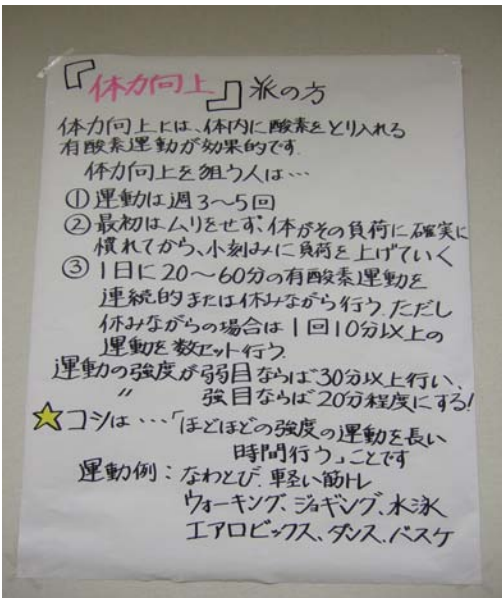 『体力向上』派の方
体力向上には、体内に酸素をとり入れる
有酸素運動が効果的です.
体力向上を狙う人は…
①運動は週3〜5回
②最初はムリをせず、体がその負荷に確実に
慣れてから、小刻みに負荷を上げていく
③1日に20〜60分の有酸素運動を
連続的または休みながら行う.ただし
休みながらの場合は1回10分以上の
運動を数セット行う.
運動の強度が弱目ならば30分以上行い、
〃 強目ならば20分程度にする!
☆コツは…「ほどほどの強度の運動を長い
時間行う」ことです
運動例:なわとび、軽い筋トレ
ウォーキング、ジョギング、水泳
エアロビックス、ダンス、バスケ